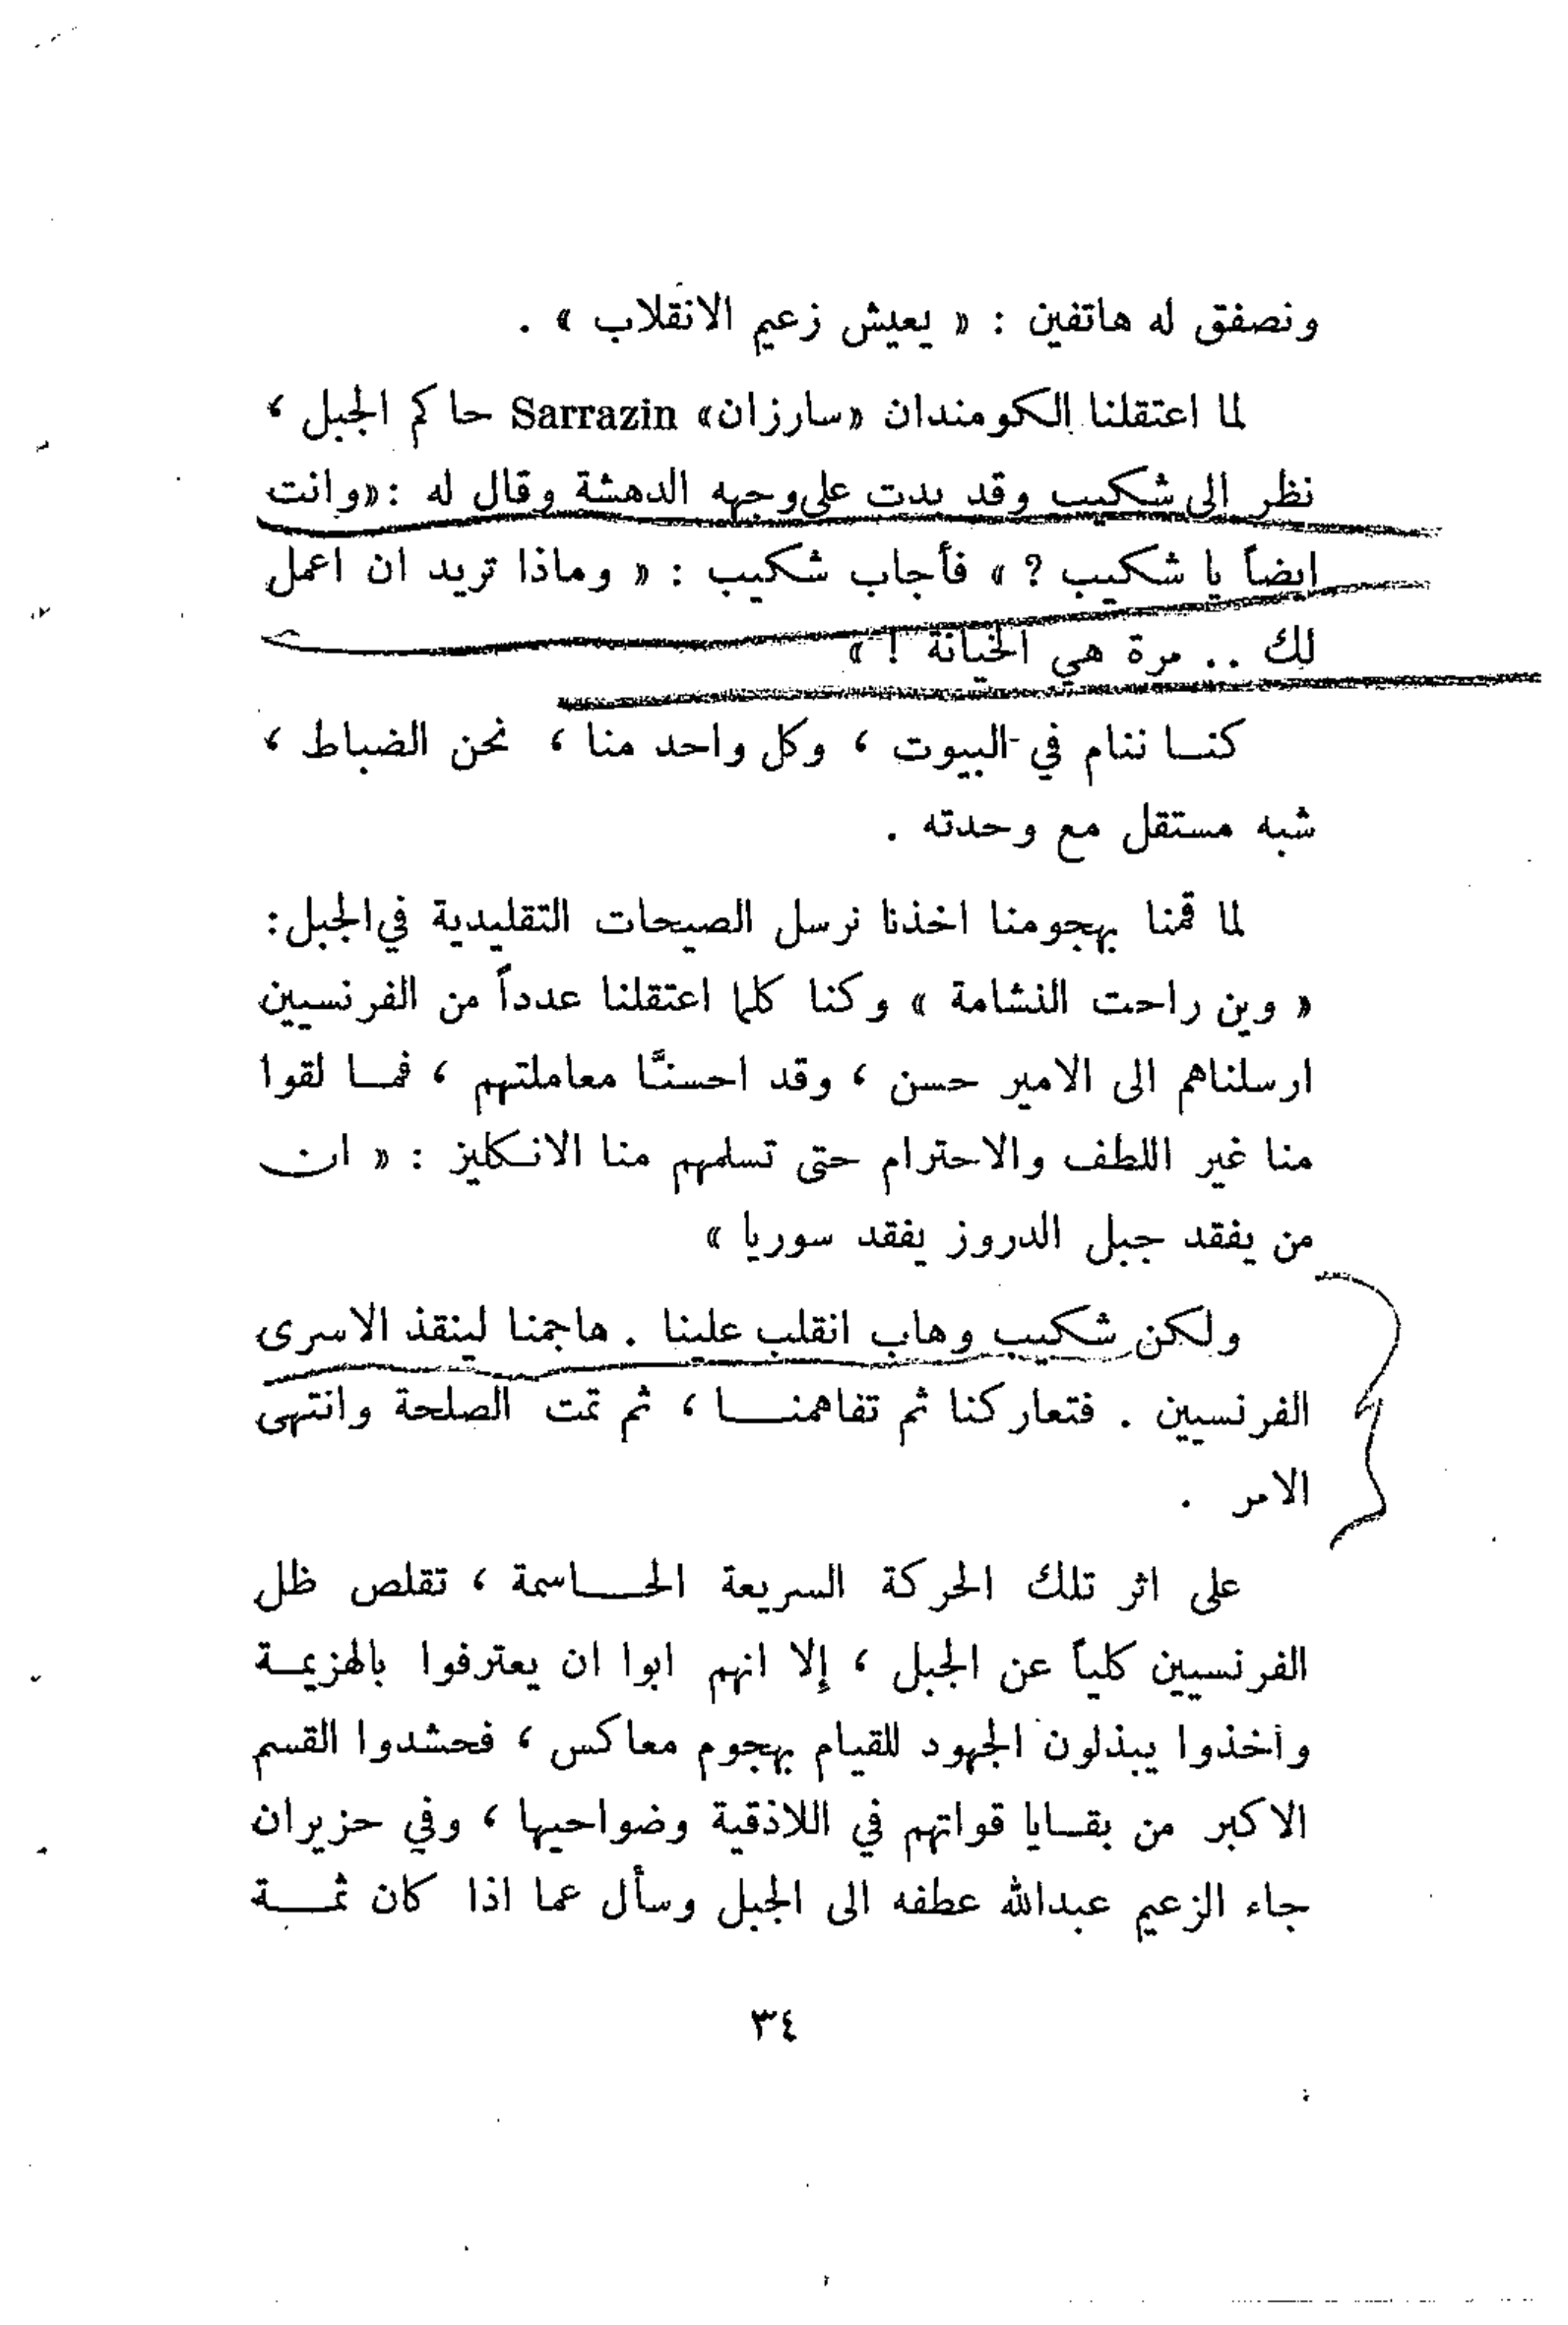 ونصفق له هاتفين : « يعيش زعيم الانقلاب » .
لما اعتقلنا الكومندان «سارزان» Sarrazin حاكم الجبل ،
نظر الى شكيب وقد بدت على وجهه الدهشة وقال له : «وانت
ايضاً يا شكيب ? » فأجاب شكيب : « وماذا تريد ان اعمل
لك .. مرة هي الخيانة ! »
كنــا ننام في البيوت ، وكل واحد منا ، نحن الضباط ،
شبه مستقل مع وحدته .
لما قمنا بهجومنا اخذنا نرسل الصيحات التقليدية في الجبل :
« وين راحت النشامة » وكنا كلما اعتقلنا عدداً من الفرنسيين
ارسلناهم الى الامير حسن ، وقد احسنَّا معاملتهم ، فمــا لقوا
منا غير اللطف والاحترام حتى تسلمهم منا الانــكليز : « ان
من يفقد جبل الدروز يفقد سوريا »
ولكن شكيب وهاب انقلب علينا . هاجمنا لينقذ الاسرى
الفرنسيين . فتعاركنا ثم تفاهمنــــا ، ثم تمت الصلحة وانتهى
الامر .
على اثر تلك الحركة السريعة الحـــاسمة ، تقلص ظل
الفرنسيين كلياً عن الجبل ، إلا انهم ابوا ان يعترفوا بالهزيمــة
وأخذوا يبذلون الجهود للقيام بهجوم معاكس ، فحشدوا القسم
الاكبر من بقــايا قواتهم في اللاذقية وضواحيها ، وفي حزيران
جاء الزعيم عبدالله عطفه الى الجبل وسأل عما اذا كان ثمـــة
٣٤